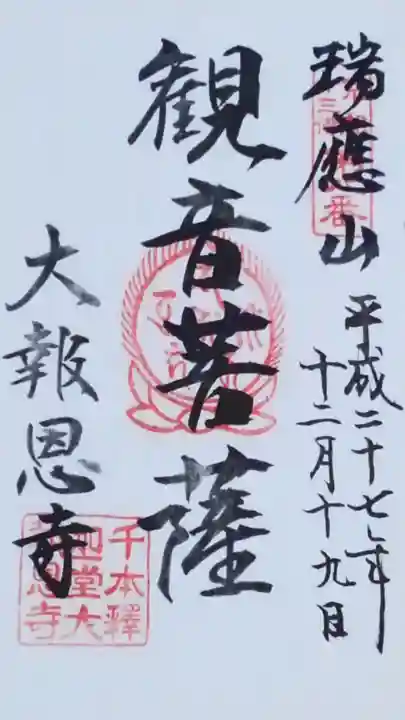 瑞應山
平成二十七年
十二月十九日
観音菩薩
大報恩寺
千本釋
迦堂大
報恩寺